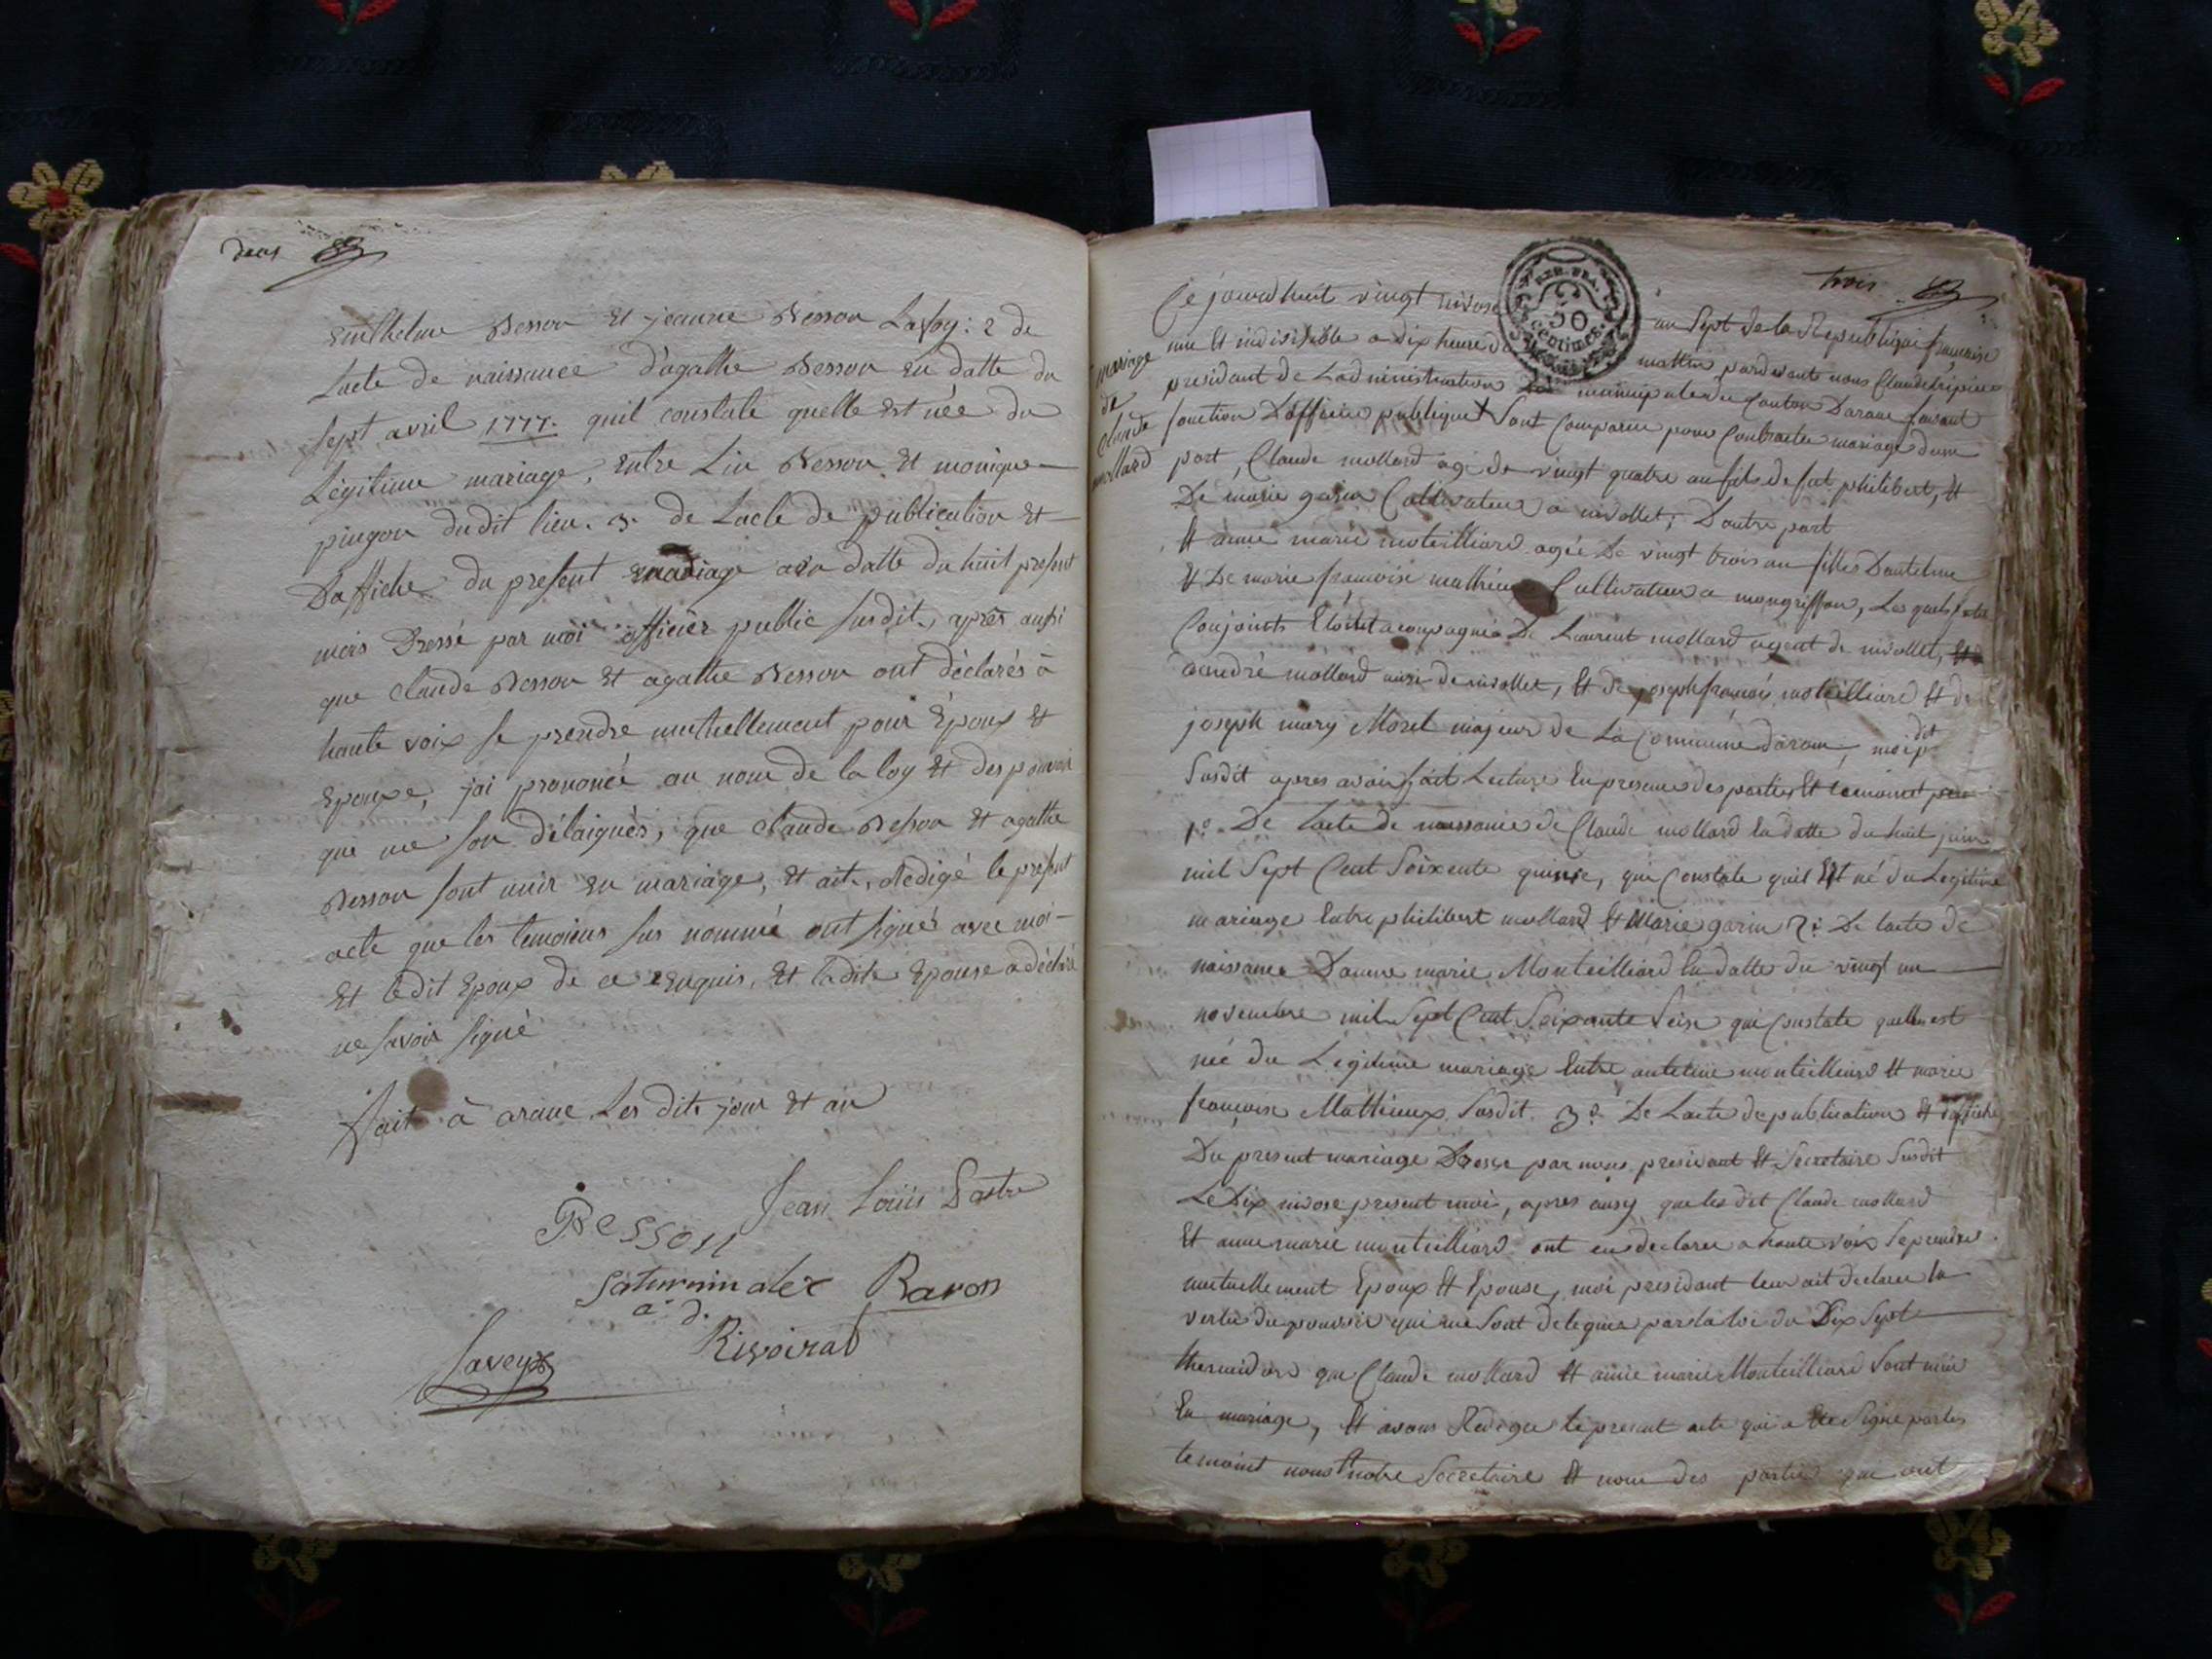 deux
Enthelme Besson Et jeanne Besson Lafoy: 2 de
Lacte de naissance d'agathe Besson En datte du
sept avril 1777. quil constate quelle Est née du
Légitime mariage, Entre Besson Et monique
pingon dudit lieu. 3. de Lacte de publication Et
Daffiche du present mariage datte du huit present
mois Dressé par moi officier public susdit, après aussi
que claude Besson Et agathe Besson ont déclarés à
haute voix se prendre muthuellement pour Epoux Et
Epouxe, jai prononcé au nom de la loy Et des pouvoir
que me son délaigués, que claude Besson Et agathe
Besson sont unir En mariage, Et ait, Redigé le present
acte que les temoiens sus nommé ont signés avec moi
Et ledit Epoux de ce Enquis, Et ladite Epouse a déclaré
ne savoir signé
fait à arane Les dits jour Et an
Jean Louis
Besson
Saturnin alex Baron
a. d.
Rivoirat
Savey
trois
REP. FRA.
50
centimes
mariage
de
Claude
mollard
Ce jourdhuit vingt nivose an Sept de la Republique francaise
une Et indivisible a dix heure du mattin pardevant nous Claude
president de Ladministration municipale du Canton Darane faisant
fonction Dofficier publique Sont Comparu pour Contracter mariage dune
part, Claude mollard agé de vingt quatre an fils de fut philibert, Et
De marie garin Cultivateur a nivollet; Dautre part
Et anne marie moteilliard agée De vingt trois an fille Dantelme
Et De marie francoise mathieu Cultivateur a mongriffon, Les quels
Conjoints Etoist acompagnés De Laurent mollard agent de nivollet,
andré mollard de nivollet, Et de joseph francois moteilliard Et de
joseph mary Morel majeur de La Commune darane, moi
dit
Susdit apres avoir fait Lecture En presence des parties Et temoint
1o. De Lacte de naissance de Claude mollard En datte du huit juin
mil Sept Cent Soixente quinze, qui Constate quil Est né du Legitime
mariage Entre philibert mollard Et Marie garin 2o. De lacte de
naissance Danne marie Monteilliard En datte du vingt un
novembre mil Sept Cent Soixante Seise qui Constate quelle est
née du Legitime mariage Entre antelme monteilliard Et marie
francoise Mathieux Susdit. 3o. De Lacte de publication Et daffiche
Du present mariage Dresse par nous president Et Secretaire Susdit
Le Dix nivose present moi, apres ausy que les dit Claude mollard
Et anne marie monteilliard ont declarer a haute voix Se prendre
mutuellement Epoux Et Epouse, moi president leur ait declarer En
vertu du pouvoir qui me Sont delegués par la loi du Dix Sept
thermidore que Claude mollard Et anne marie Monteilliard Sont unir
En mariage, Et avons Rediger le present acte qui a Ete Signe par les
temoint nous Et notre Secretaire Et non des parties qui ont